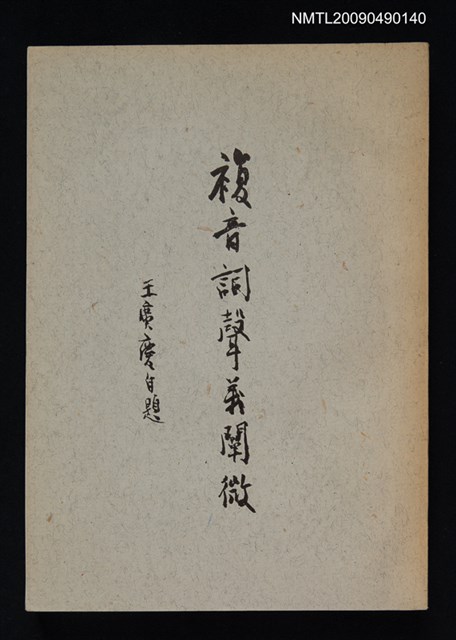 NMTL20090490140
複音詞聲義闡微
王廣慶自題